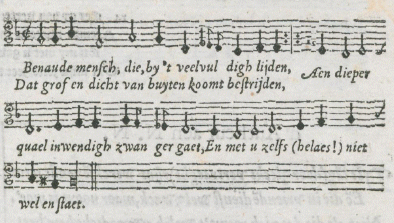 Benaude mensch, die, by 't veelvul digh lijden,
Dat grof en dicht van buyten koomt bestrijden,
Aen dieper
quael inwendigh zwan ger gaet, En met u zelfs (helaes!) niet
wel en staet.